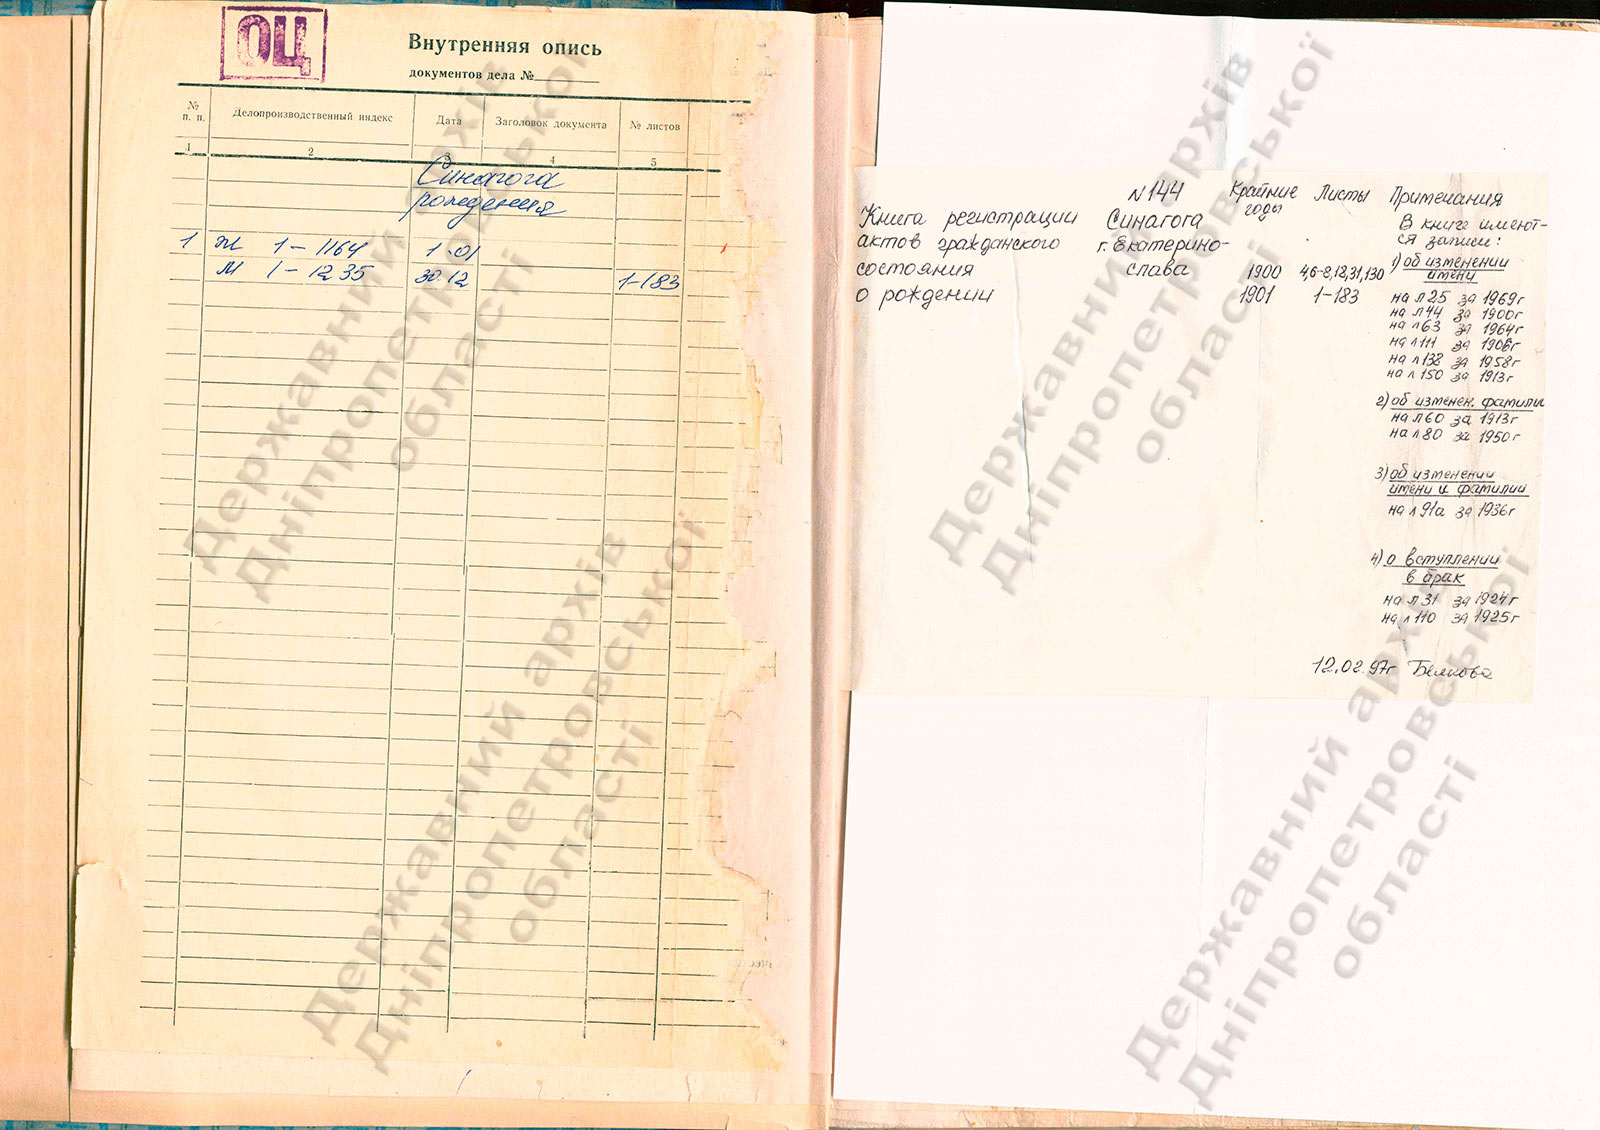 ОЦ
Внутренняя опись
документов дела №
№ п. п.
Делопроизводственный индекс
Дата
Заголовок документа
№ листов
1 2 3 4 5
Синагога
рождения
1 Ж 1-1164 1.01
М 1-1235 30.12 1-183
№144 Крайние годы Листы Примечания
Книга регистрации
актов гражданского
состояния
о рождении
Синагога
г. Екатерино-
слава
1900 4,6-8,12,31,130
1901 1-183
В книге имеют-
ся записи:
1) об изменении
имени
на л25 за 1969г
на л44 за 1900г
на л63 за 1964г
на л111 за 1906г
на л138 за 1958г
на л150 за 1913г
2) об изменен. фамилии
на л60 за 1913г
на л80 за 1950г
3) об изменении
имени и фамилии
на л91а за 1936г
4) о вступлении
в брак
на л31 за 1924г
на л110 за 1925г
12.02.97г Белкова
Державний архів
Дніпропетровської
області
Державний архів
Дніпропетровської
області
Державний архів
Дніпропетровської
області
Державний архів
Дніпропетровської
області